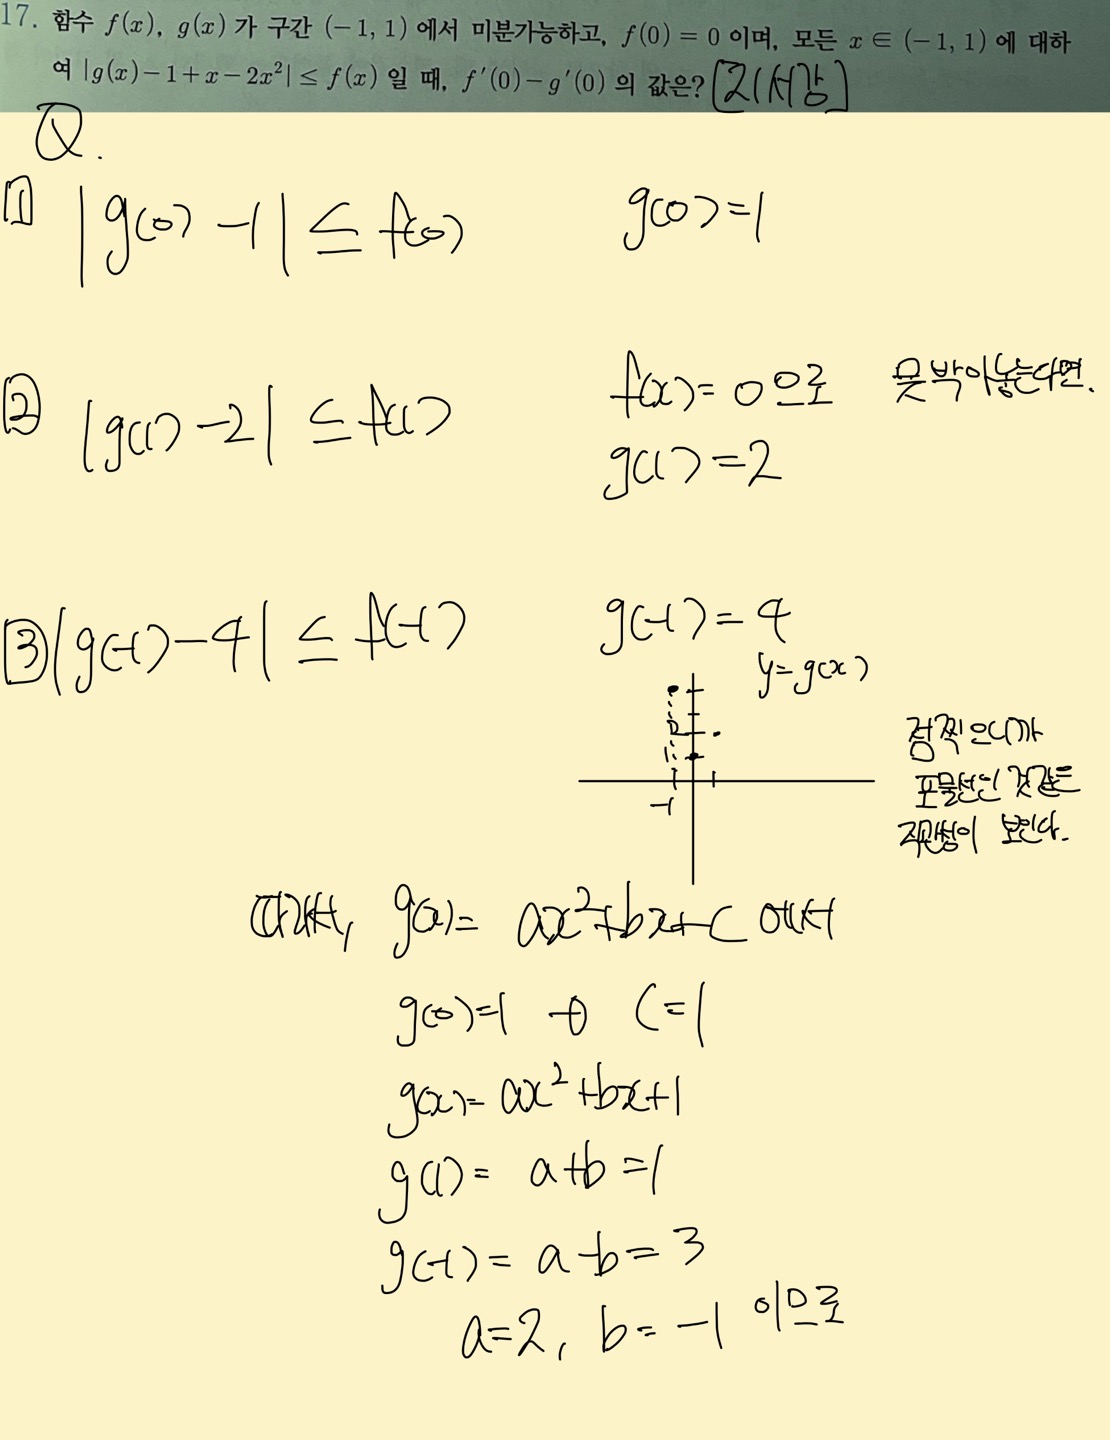 17. 함수 f(x), g(x) 가 구간 (-1, 1) 에서 미분가능하고, f(0) = 0 이며, 모든 x ∈ (-1, 1) 에 대하
여 |g(x)-1+x-2x²| ≤ f(x) 일 때, f'(0)-g'(0) 의 값은? [21서강]
Q.
1 |g(0) -1| ≤ f(0) g(0)=1
2 |g(1) -2| ≤ f(1) f(x)= 0 으로 못박아놓는다면.
g(1)=2
3 |g(-1)-4| ≤ f(-1) g(-1)=4
y=g(x)
2
1
-1
점찍으니까
포물선인 것같은
직관성이 보인다.
따라서, g(x)= ax²+bx+c 에서
g(0)=1 → c=1
g(x)= ax²+bx+1
g(1)= a+b=1
g(-1)= a-b=3
a=2, b=-1 이므로